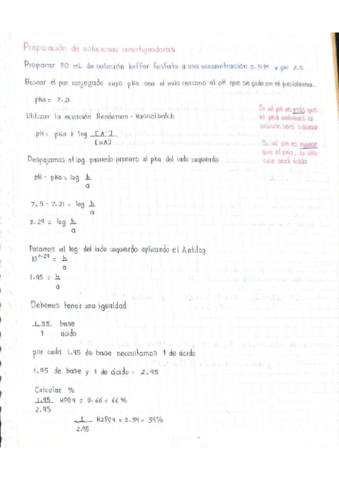 Preparación de soluciones amortiguadoras
Preparar 50 mL de solución buffer fosfato a una concentración 0.5 M y pH 7.5
Buscar el par conjugado cuyo pKa sea el más cercano al pH que se pide en el problema.
pKa = 7.21
Utilizar la ecuación Henderson - Hasselbalch
pH = pKa + log [A⁻]
[HA]
Si el pH es más que
el pKa entonces la
solución será básica
Si el pH es menor
que el pKa, la
será ácida
Despejamos el log pasando primero al pKa del lado izquierdo
pH - pKa = log b
a
7.5 - 7.21 = log b
a
0.29 = log b
a
Pasamos al log del lado izquierdo aplicando el Antilog
10^0.29 = b
a
1.95 = b
a
Debemos tener una igualdad
1.95 base
1 ácido
por cada 1.95 de base necesitamos 1 de ácido
1.95 de base y 1 de ácido = 2.95
Calcular %
1.95 HPO4 = 0.66 = 66%
2.95
1 H2PO4 = 0.34 = 34%
2.95